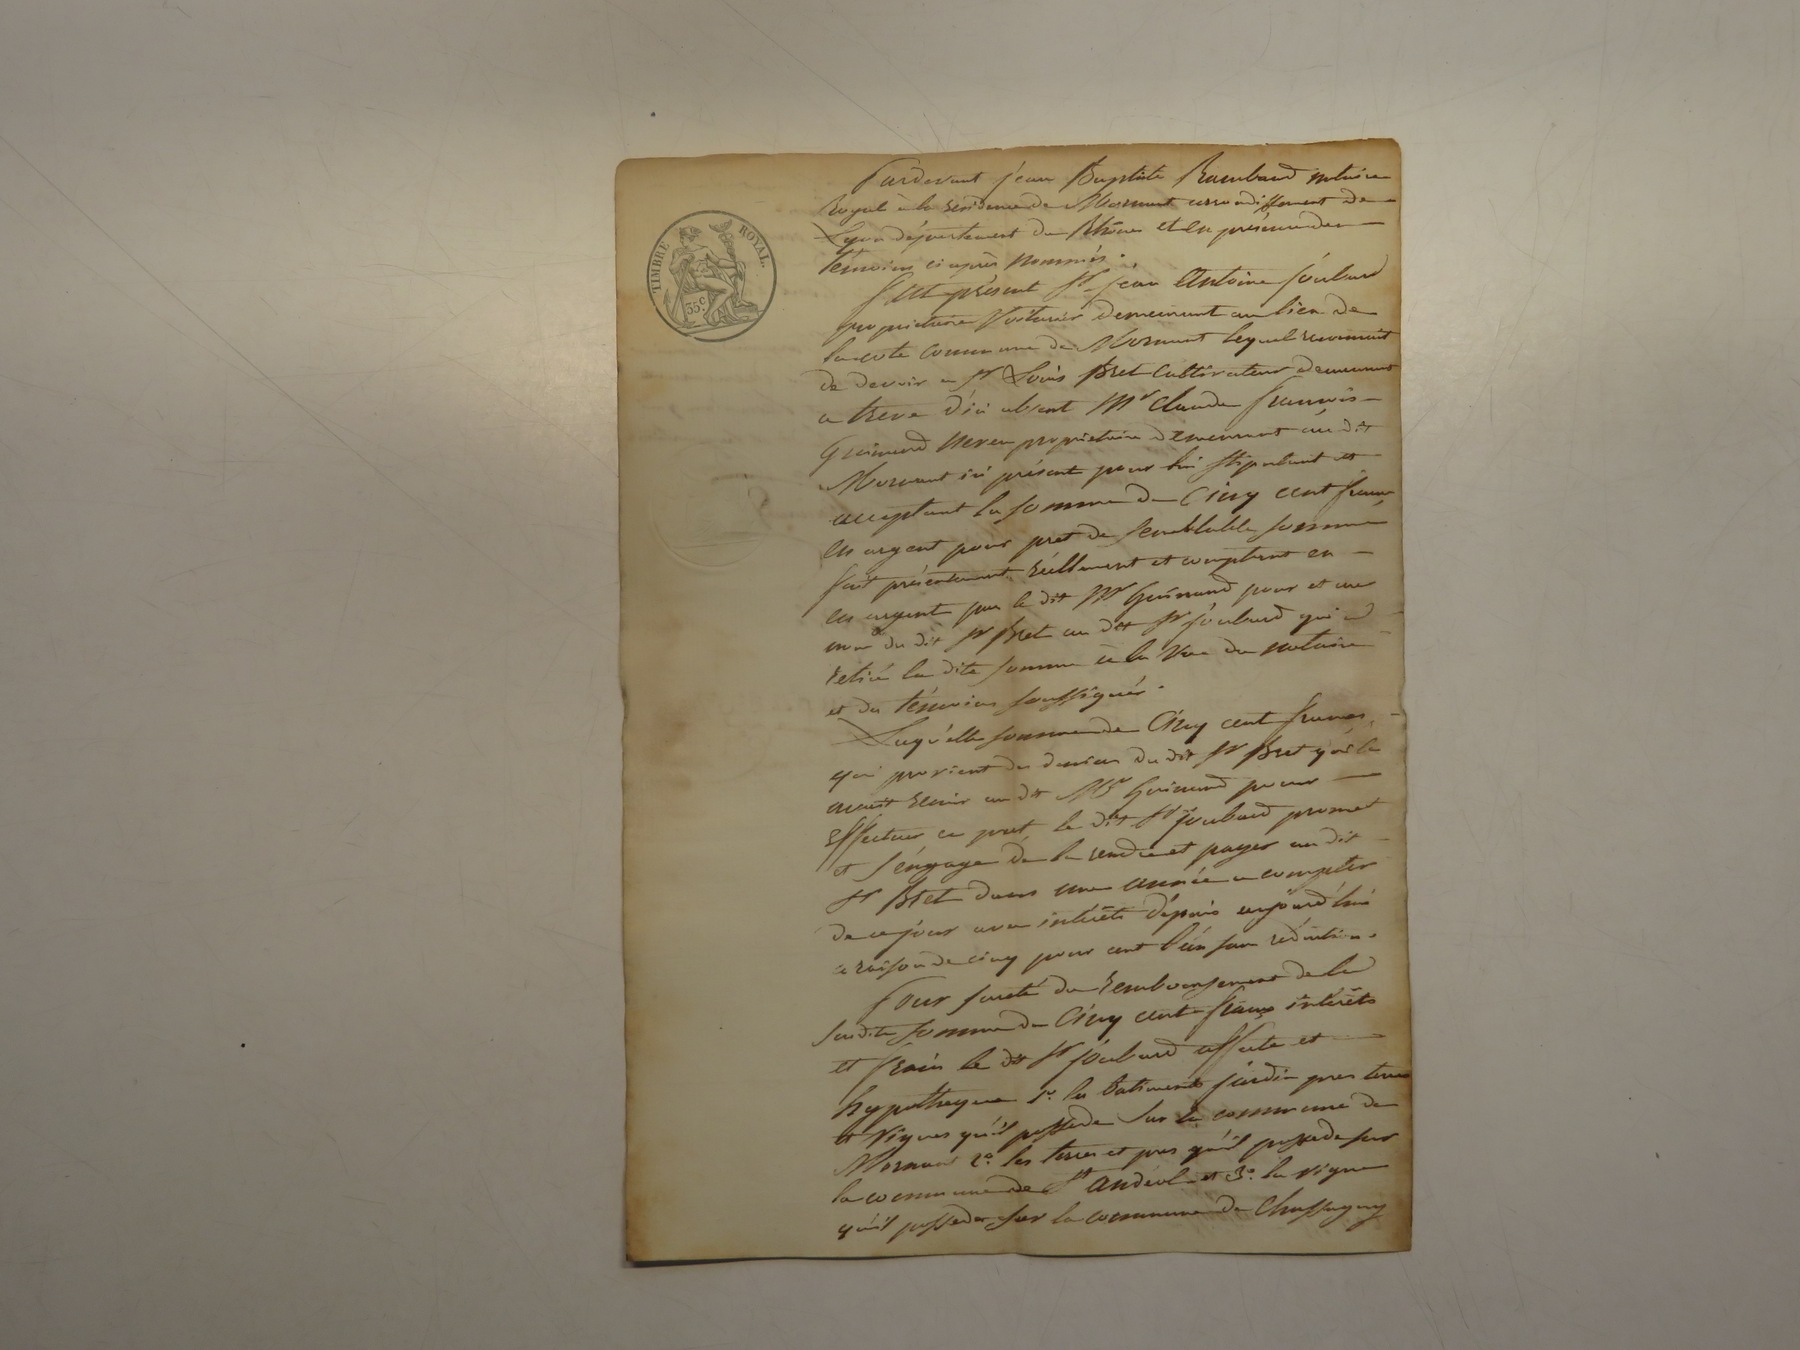 TIMBRE ROYAL.
35 c.
Pardevant jean Baptiste Rambaud notaire
Royal à la résidence de Mornant arrondissement de
Lyon département du Rhône et en présence des
témoins ci après nommés.
fut présent Sr jean Antoine joubard
propriétaire Voiturier demeurant au lieu de
la cote commune de Mornant lequel reconnait
de devoir a Sr Louis Bret Cultivateur demeurant
a d'ici absent Mr Claude françois
Guinand propriétaire demeurant au dit
Mornant ici présent pour lui stipulant et
acceptant la somme de Cinq cent francs
en argent pour pret de semblable somme
fait présentement réellement et comptant en
en argent par le dit Mr Guinand pour et au
nom du dit Sr Bret au dit Sr joubard qui a
retiré la dite somme à la Vue du notaire
et des témoins soussignés.
Laqu'elle somme de Cinq cent francs
qui provient des deniers du dit Sr Bret qui les
avait remis au dit Mr Guinand pour
effectuer ce pret, le dit Sr joubard promet
et s'engage de la rendre et payer au dit
Sr Bret dans une année a compter
de ce jour avec intérêts dépuis aujourd'hui
a raison de cinq pour cent l'an sans réduction.
Pour sureté du remboursement de la
susdite somme de Cinq cent francs intérêts
et frais le dit Sr joubard affecte et
hypothèque 1º. les batiments jardin pres terres
et Vignes qu'il possède sur la commune de
Mornant 2º. les terres et pres qu'il possede sur
la commune de St Andéol et 3º. la vigne
qu'il possede sur la commune de Chassagny